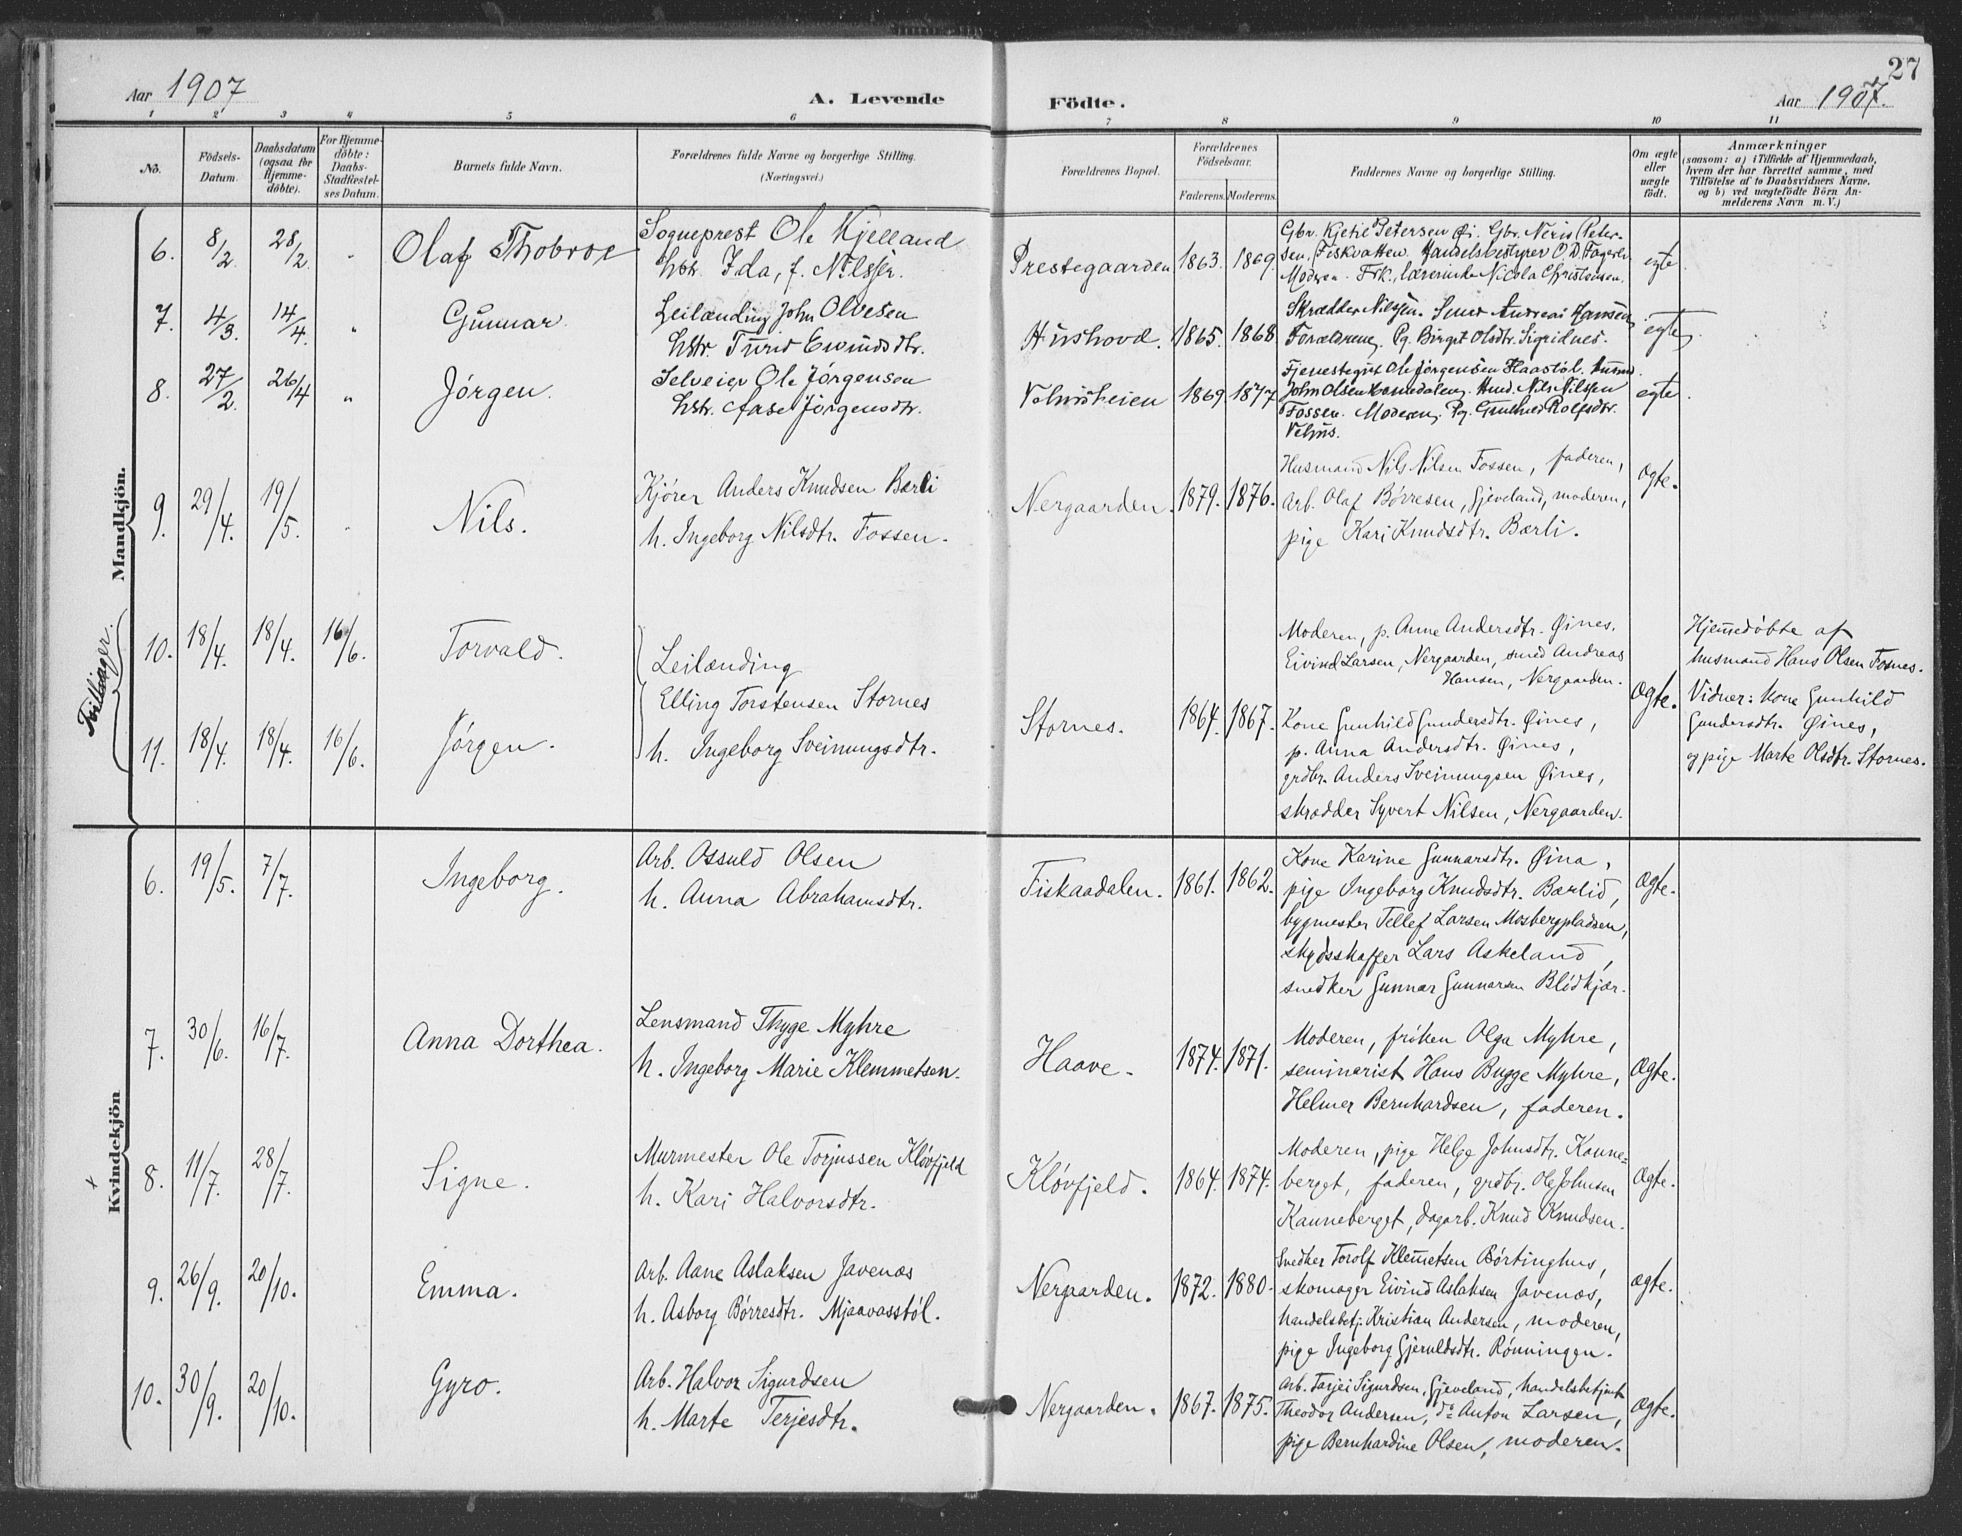 27
Aar 1907
A. Levende
Födte.
Aar 1907.
1 2 3 4 5 6 7 8 9 10 11
No.
Födsels-
Datum.
Daabsdatum
(ogsaa for
Hjemme-
döbte).
For Hjemme-
döbte:
Daabs-
Stadfæstel-
ses Datum.
Barnets fulde Navn.
Forældrenes fulde Navne og borgerlige Stilling.
(Næringsvei.)
Forældrenes Bopæl.
Forældrenes
Födselsaar.
Faderens. Moderens.
Faddernes Navne og borgerlige Stilling.
Om ægte
eller
uægte
födt.
Anmærkninger
(saasom: a) i Tilfælde af Hjemmedaab,
hvem der har forrettet samme, med
Tilföielse af to Daabsvidners Navne,
og b) ved uægtefödte Börn An-
melderens Navn m. V.)
Mandkjön.
6. 8/2 28/2 "
Olaf Thobroe
Sogneprest Ole Kjelland
hstr. Ida, f.
Prestegaarden 1863. 1869.
Gbr. Kjetil Petersen Øi. Gbr. Neris Peter-
sen, Fiskvatten. Handelsbestyrer O. D.
Moderen. Frk. lærerinde Nicola Christensen.
egte
7. 4/3 14/4 "
Gunnar.
Leilænding John Olvesen
hstr. Turid Ewindsdtr.
Hushovd. 1865. 1868.
Skrædder Nilssen. Smed Andreas Hansen,
Forældrene, Pg. Birgit Olsdtr. Sigridnes.
egte
8. 27/2 26/4 "
Jörgen.
Selveier Ole Jörgensen
hstr. Aase Jörgensdtr.
Velhusheien 1869. 1877
Tjenestegut Ole Jörgensen Haastöl.
John Olsen Hmd. Nils Nilssen
Fossen. Moderen, Pg. Gunhild Rolfsdtr.
Velhus.
egte
9. 29/4. 19/5. "
Nils.
Kjörer Anders Knudsen Bærli
h. Ingeborg Nilsdtr. Fossen.
Nergaarden. 1879. 1876.
Husmand Nils Nilsen Fossen, faderen,
Arb. Olaf Börresen, Gjeveland, moderen,
pige Kari Knudsdtr. Bærli.
Ægte.
Tvillinger.
10. 18/4. 18/4. 16/6.
Torvald.
Leilænding
Elling Torstensen Stornes
h. Ingeborg Sveinungsdtr.
11. 18/4. 18/4. 16/6.
Jörgen.
Stornes. 1864. 1867.
Moderen, p. Anne Andersdtr. Øines.
Eivind Larsen, Nergaarden, smed Andreas
Hansen, Nergaarden.
Kone Gunhild Gundersdtr. Øines,
p. Anna Andersdtr. Øines,
grdbr. Anders Sveinungsen Øines,
skrædder Syvert Nilsen, Nergaarden.
Ægte.
Hjemmedöbte af
husmand Hans Olsen Fosnes.
Vidner: kone Gunhild
Gundersdtr. Øines,
og pige Marte Olsdtr. Stornes.
Kvindekjön
6. 19/5. 7/7.
Ingeborg.
Arb. Ossuld Olsen
h. Anna Abrahamsdtr.
Fiskaadalen. 1861. 1862.
Kone Karine Gunnarsdtr. Øina,
pige Ingeborg Knudsdtr. Bærlid,
bygmester Tellef Larsen Mosbergpladsen,
skydsskaffer Lars Askeland,
snedker Gunnar Gunnarsen Blödkjær.
Ægte.
7. 30/6. 16/7.
Anna Dorthea.
Lensmand Thyge Myhre
h. Ingeborg Marie Klemmetsen.
Haave. 1874. 1871.
Moderen, fröken Olga Myhre,
seminarist Hans Bugge Myhre,
Helmer Bernhardsen, faderen.
Ægte.
8. 11/7. 28/7.
Signe.
Murmester Ole Torjussen Klövfjeld
h. Kari Halvorsdtr.
Klövfjeld. 1864. 1874.
Moderen, pige Helge Johnsdtr. Kanne-
berget, faderen, grdbr. Ole Johnsen
Kanneberget, dagarb. Knud Knudsen.
Ægte.
9. 26/9. 20/10.
Emma.
Arb. Aane Aslaksen Javenæs
h. Asborg Börresdtr. Mjaavasstöl.
Nergaarden. 1872. 1880.
Snedker Torolf Klemmetsen Börtinghus,
skomager Eivind Aslaksen Javenæs,
handelsbetj. Kristian Andersen, moderen,
pige Ingeborg Gjeruldsdtr. Rönningen.
Ægte.
10. 30/9. 20/10.
Gyro.
Arb. Halvor Sigurdsen
h. Marte Terjesdtr.
Nergaarden. 1867. 1875.
Arb. Tarjei Sigurdsen, Gjeveland, handelsbetjent
Theodor Andersen, do Anton Larsen,
pige Bernhardine Olsen, moderen.
Ægte.